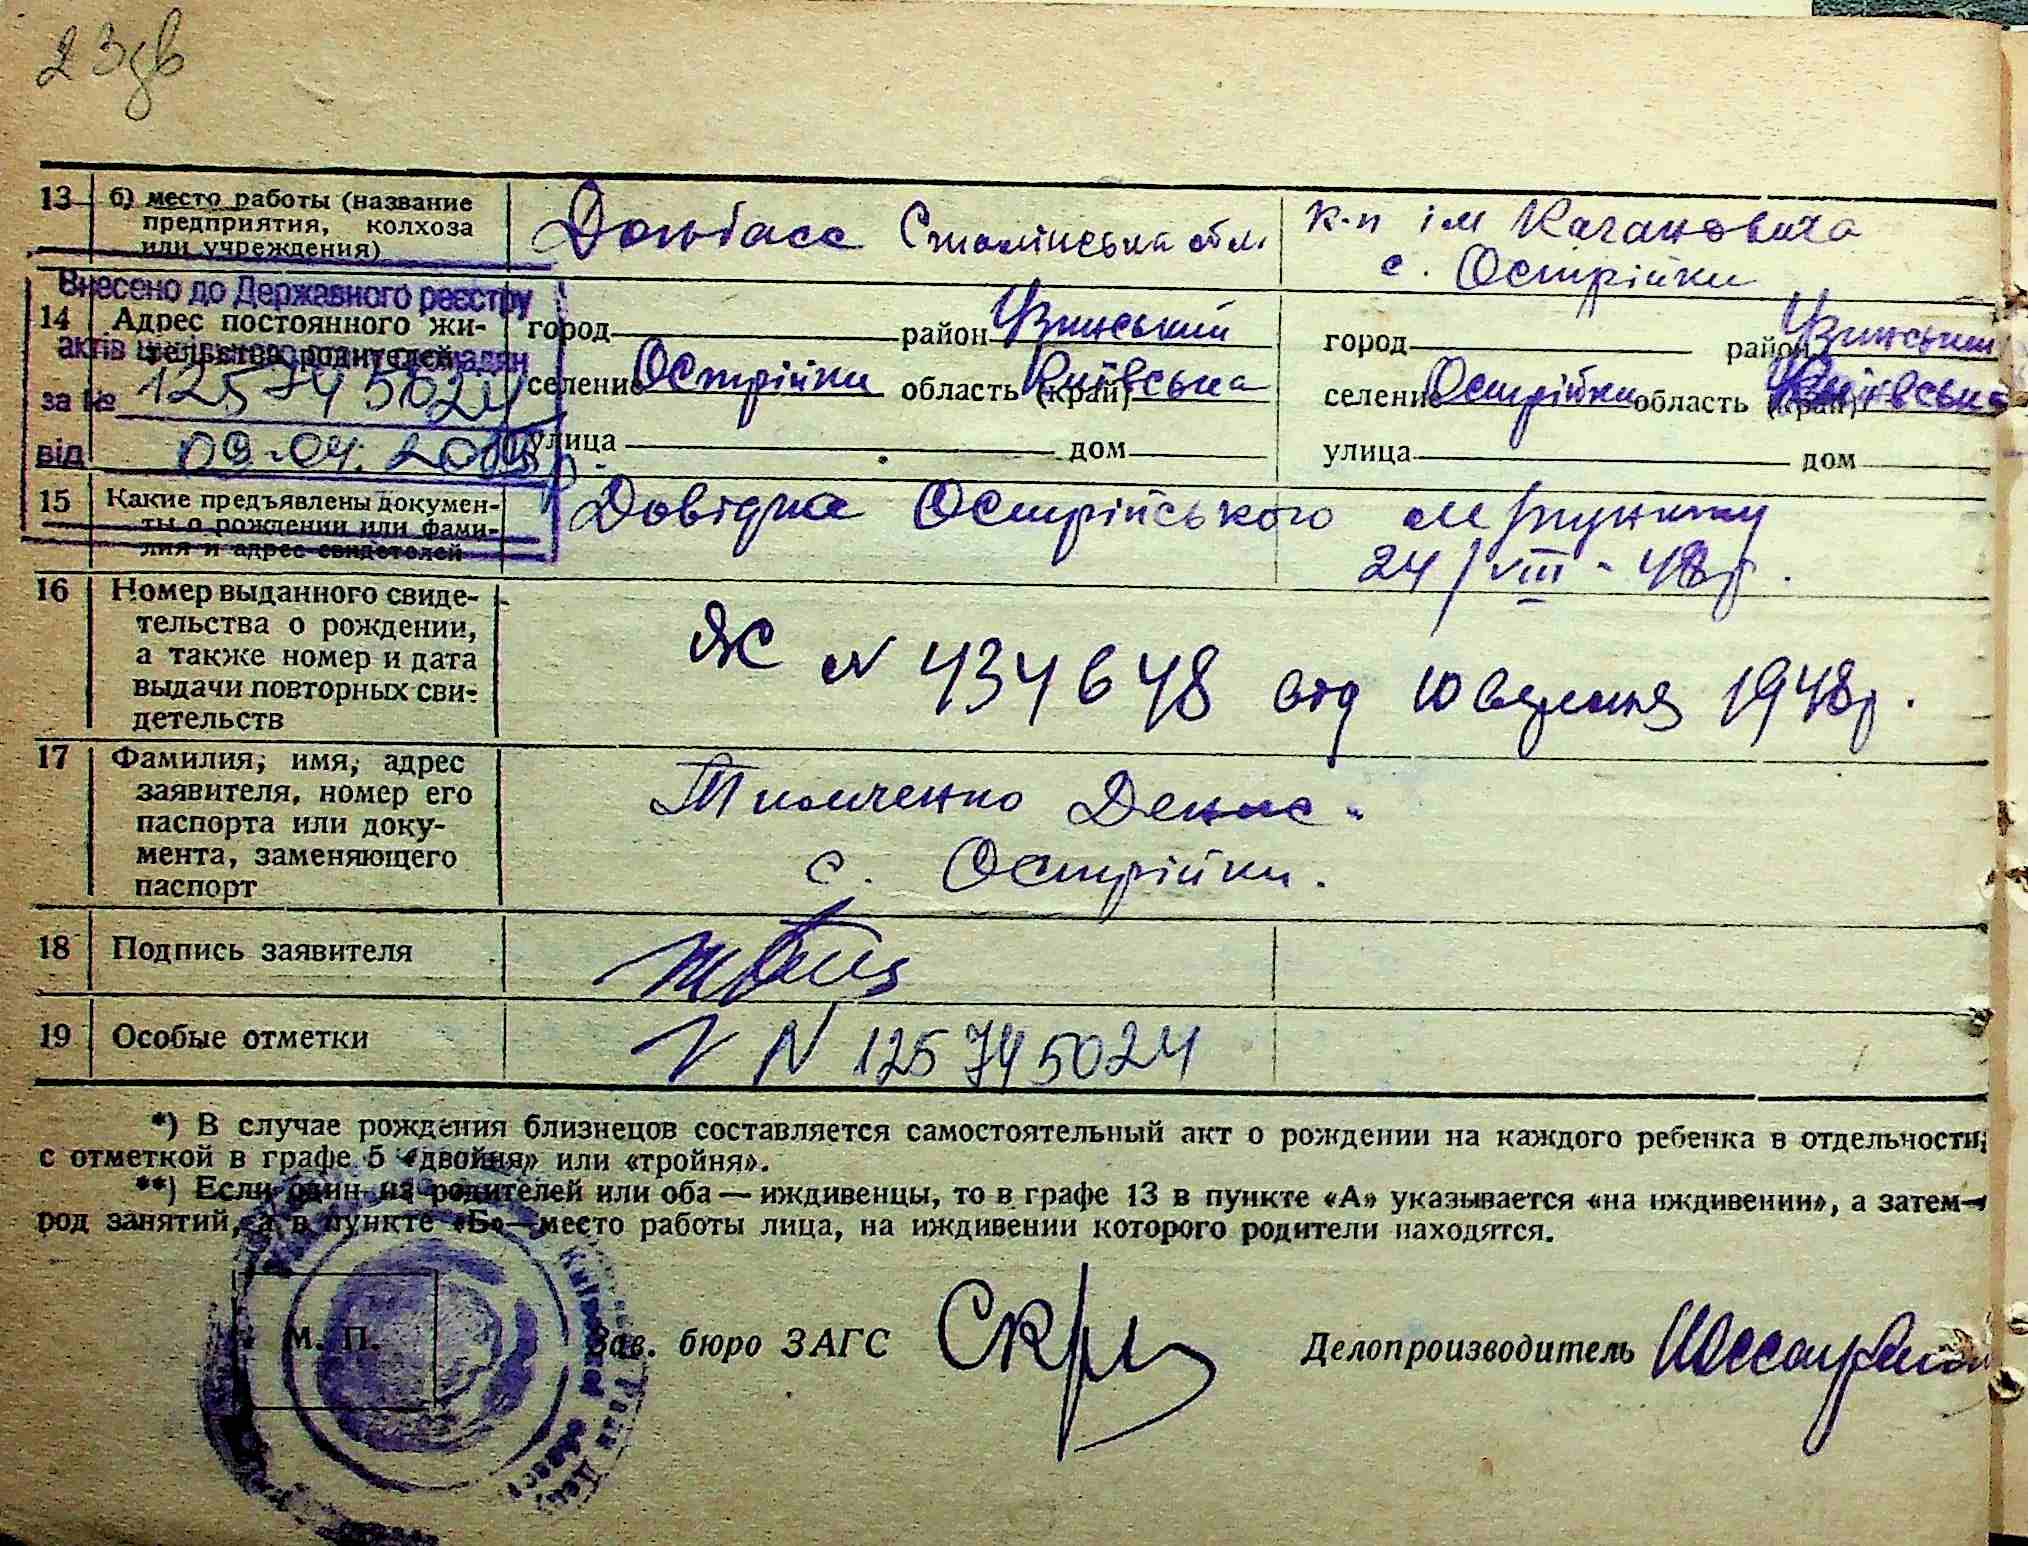 13 б) место работы (название предприятия, колхоза или учреждения)
Донбасс Сталінська обл.
к-п ім Кагановича
с. Острійки
Внесено до Державного реєстру
актів цивільного стану громадян
за № 12574 5024
від 09.04.
14 Адрес постоянного жительства родителей
город район Узинський
селение Острійки область (край) Київська
улица дом
город район Узинський
селение Острійки область (край) Київська
улица дом
15 Какие предъявлены документы о рождении или фамилия и адрес свидетелей
Довідка Острійського
24/VIII - 48р.
16 Номер выданного свидетельства о рождении, а также номер и дата выдачи повторных свидетельств
ЯЖ N 434648 від 10 вересня 1948р.
17 Фамилия, имя, адрес заявителя, номер его паспорта или документа, заменяющего паспорт
Тимченко Денис.
с. Острійки.
18 Подпись заявителя
19 Особые отметки
N 12574 5024
*) В случае рождения близнецов составляется самостоятельный акт о рождении на каждого ребенка в отдельности,
с отметкой в графе 5 «двойня» или «тройня».
**) Если один из родителей или оба — иждивенцы, то в графе 13 в пункте «А» указывается «на иждивении», а затем—
род занятий, а в пункте «Б»—место работы лица, на иждивении которого родители находятся.
М. П.
Зав. бюро ЗАГС
Делопроизводитель